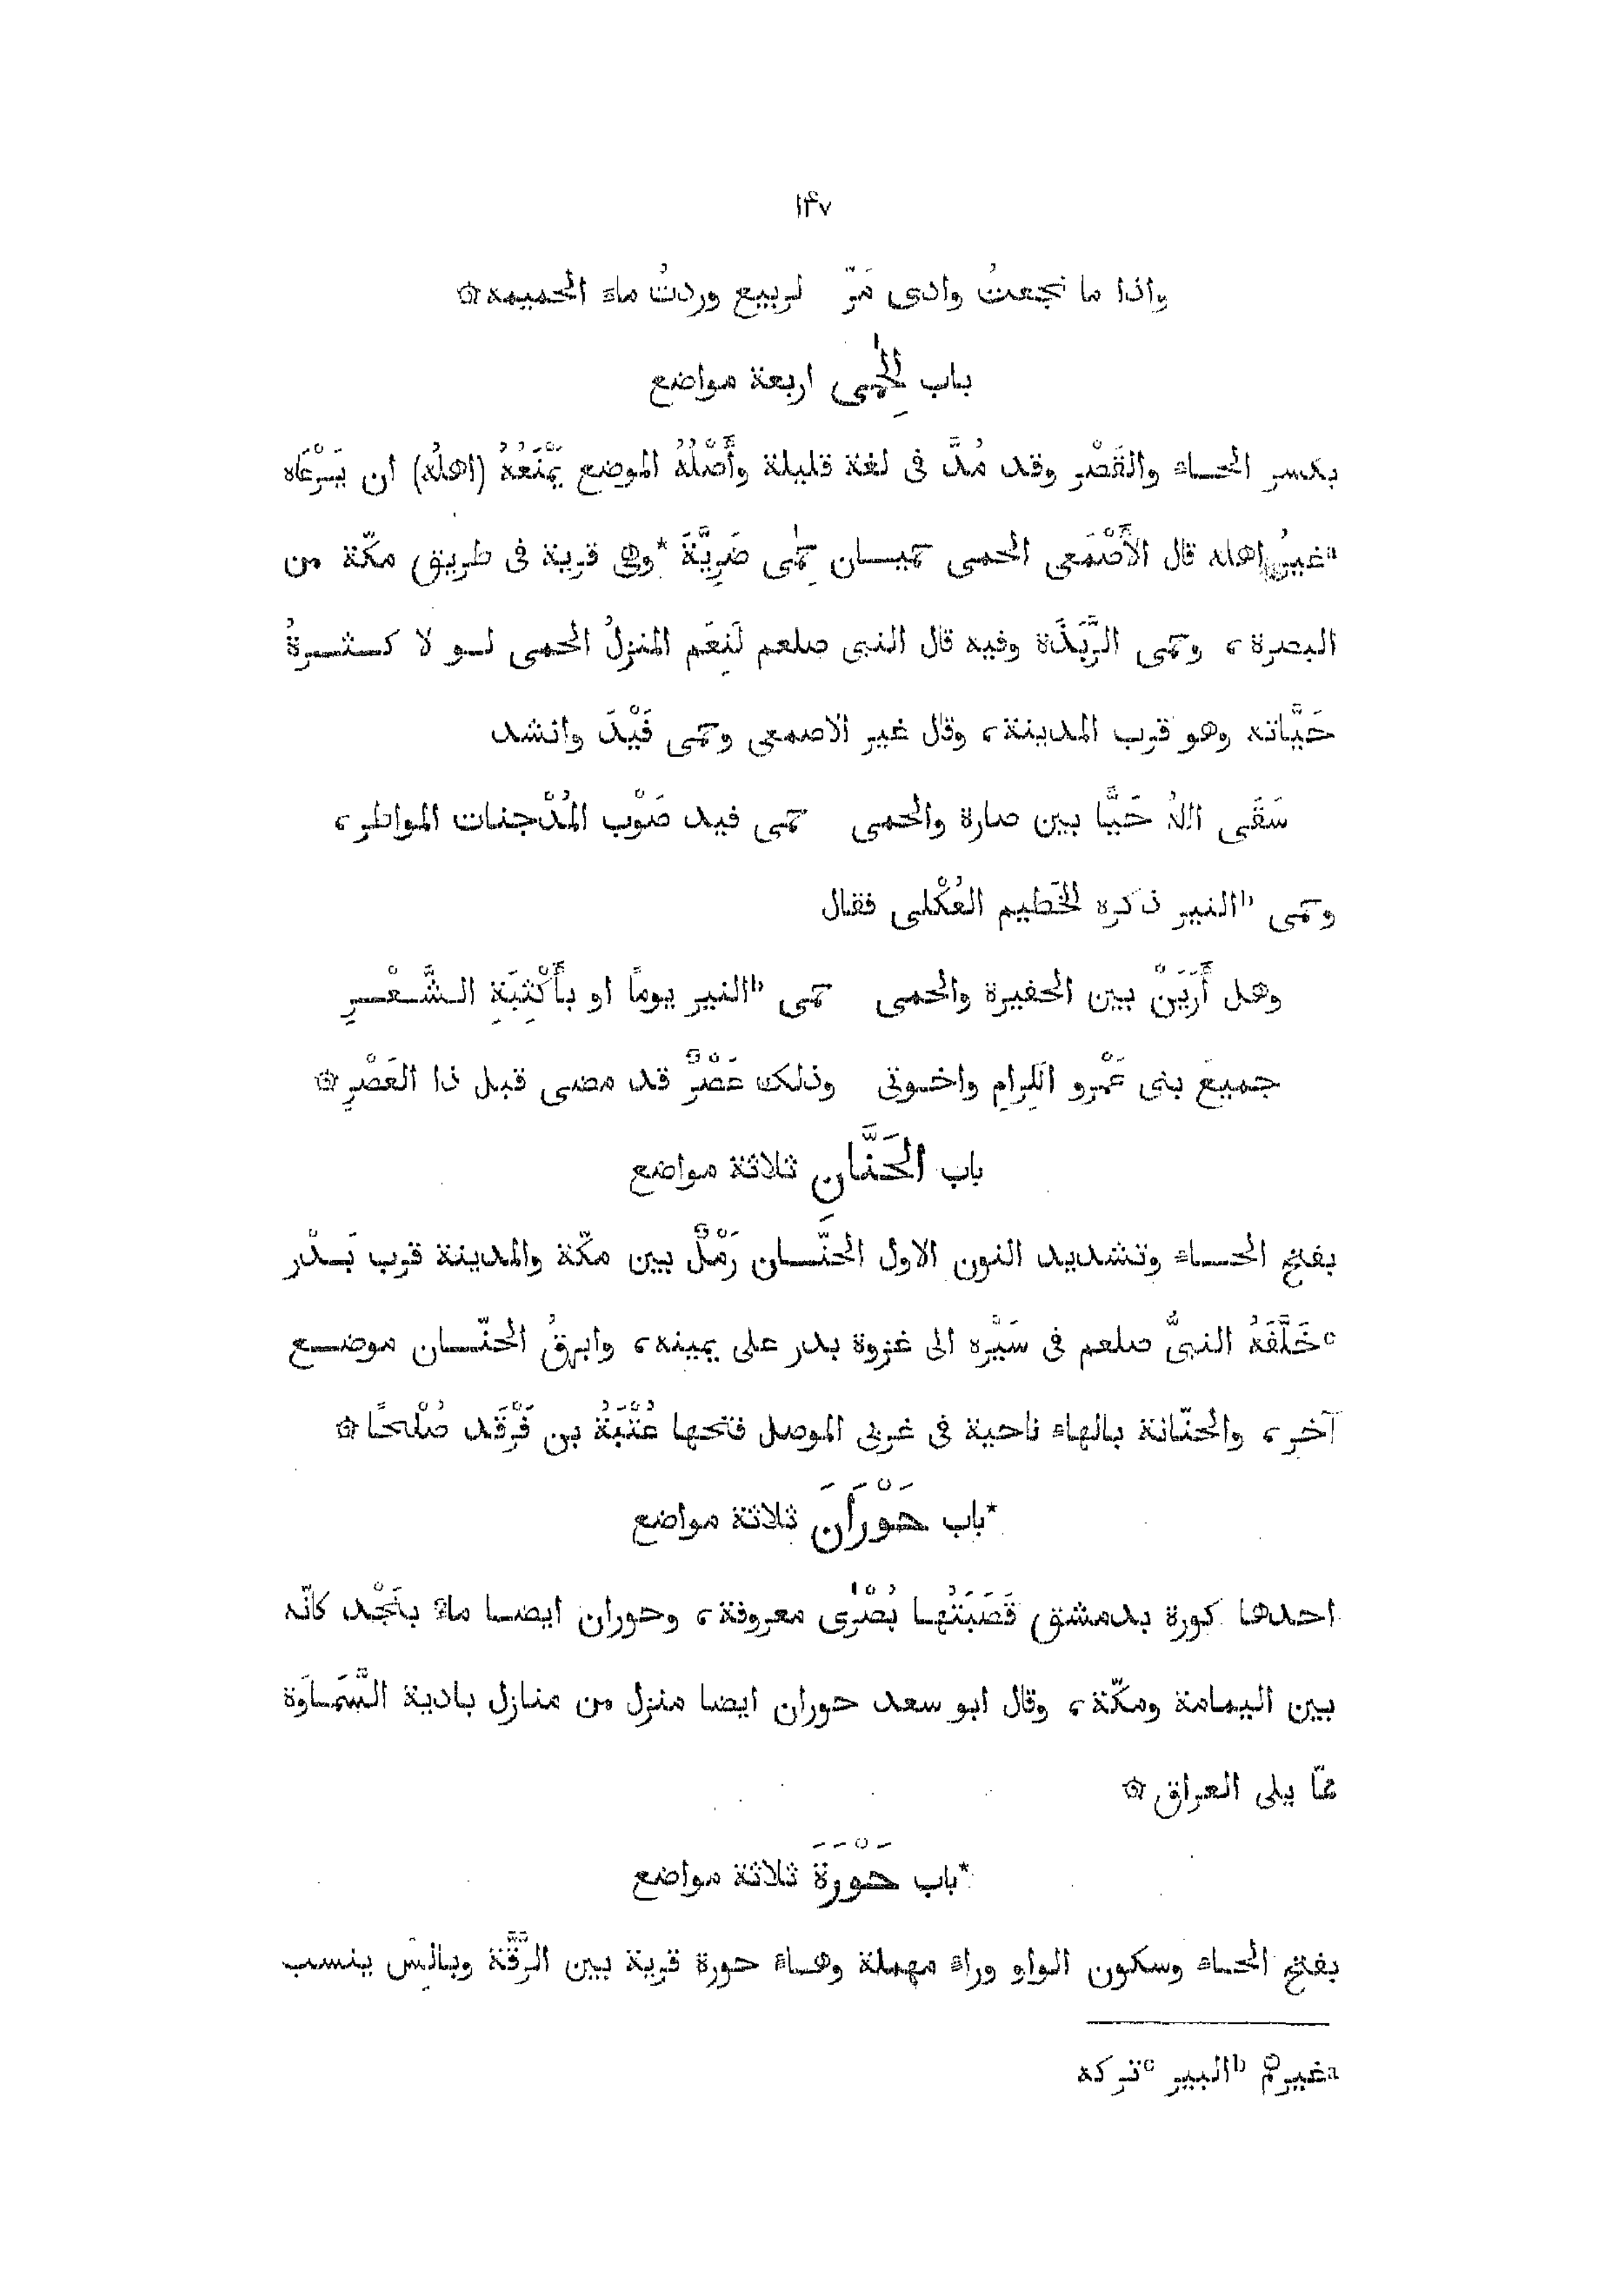 ١٤٧
واذا ما نجعتُ وادى مَرّ لربيع وردتُ ماء الحميمه ۞
باب الحِمٰى اربعة مواضع
بكسر الحاء والقَصْر وقد مُدَّ فى لغة قليلة وأَصْلُهُ الموضع يَمْنَعُهُ (اهلُه) ان يَرْعَاه
ᵃغيرُ اهله قال الأَصْمَعى الحمى حميان حِمٰى ضَرِيَّةَ *وهى قرية فى طريق مكّة من
البصرة، وحمى الرَّبَذَة وفيه قال النبى صلعم لَنِعَم المنزلُ الحمى لو لا كثرةُ
حَيَّاته وهو قرب المدينة، وقال غير الاصمعى وحمى فَيْدَ وانشد
سَقَى اللهُ حَيًّا بين صارة والحمى حمى فيد صَوْب المُدْجنات المواطر،
وحمى ᵇالنير ذكره الخَطيم العُكْلى فقال
وهل أَرَيَنْ بين الحفيرة والحمى حمى ᵇالنير يومًا او بأَكْثِبَةِ الشَّعْرِ
جميعَ بنى عَمْرو الكِرامِ واخوتى وذلك عَصْرٌ قد مضى قبل ذا العَصْرِ ۞
باب الحَنَّانِ ثلاثة مواضع
بفتح الحاء وتشديد النون الاول الحنّان رَمْلٌ بين مكّة والمدينة قرب بَدْر
ᶜخَلَّفَهُ النبىُّ صلعم فى سَيْره الى غزوة بدر على يمينه، وابرقُ الحنّان موضع
آخر، والحنّانة بالهاء ناحية فى غربى الموصل فتحها عُتْبَةُ بن فَرْقَد صُلْحًا ۞
*باب حَوْرَانَ ثلاثة مواضع
احدها كورة بدمشق قَصَبَتُها بُصْرٰى معروفة، وحوران ايضا ماء بنَجْد كانّه
بين اليمامة ومكّة، وقال ابو سعد حوران ايضا منزل من منازل بادية السَّمَاوَة
ممّا يلى العراق ۞
*باب حَوْرَةَ ثلاثة مواضع
بفتح الحاء وسكون الواو وراء مهملة وهاء حورة قرية بين الرَّقَّة وبالِسَ ينسب
ᵃغيرهم ᵇالبير ᶜتركه